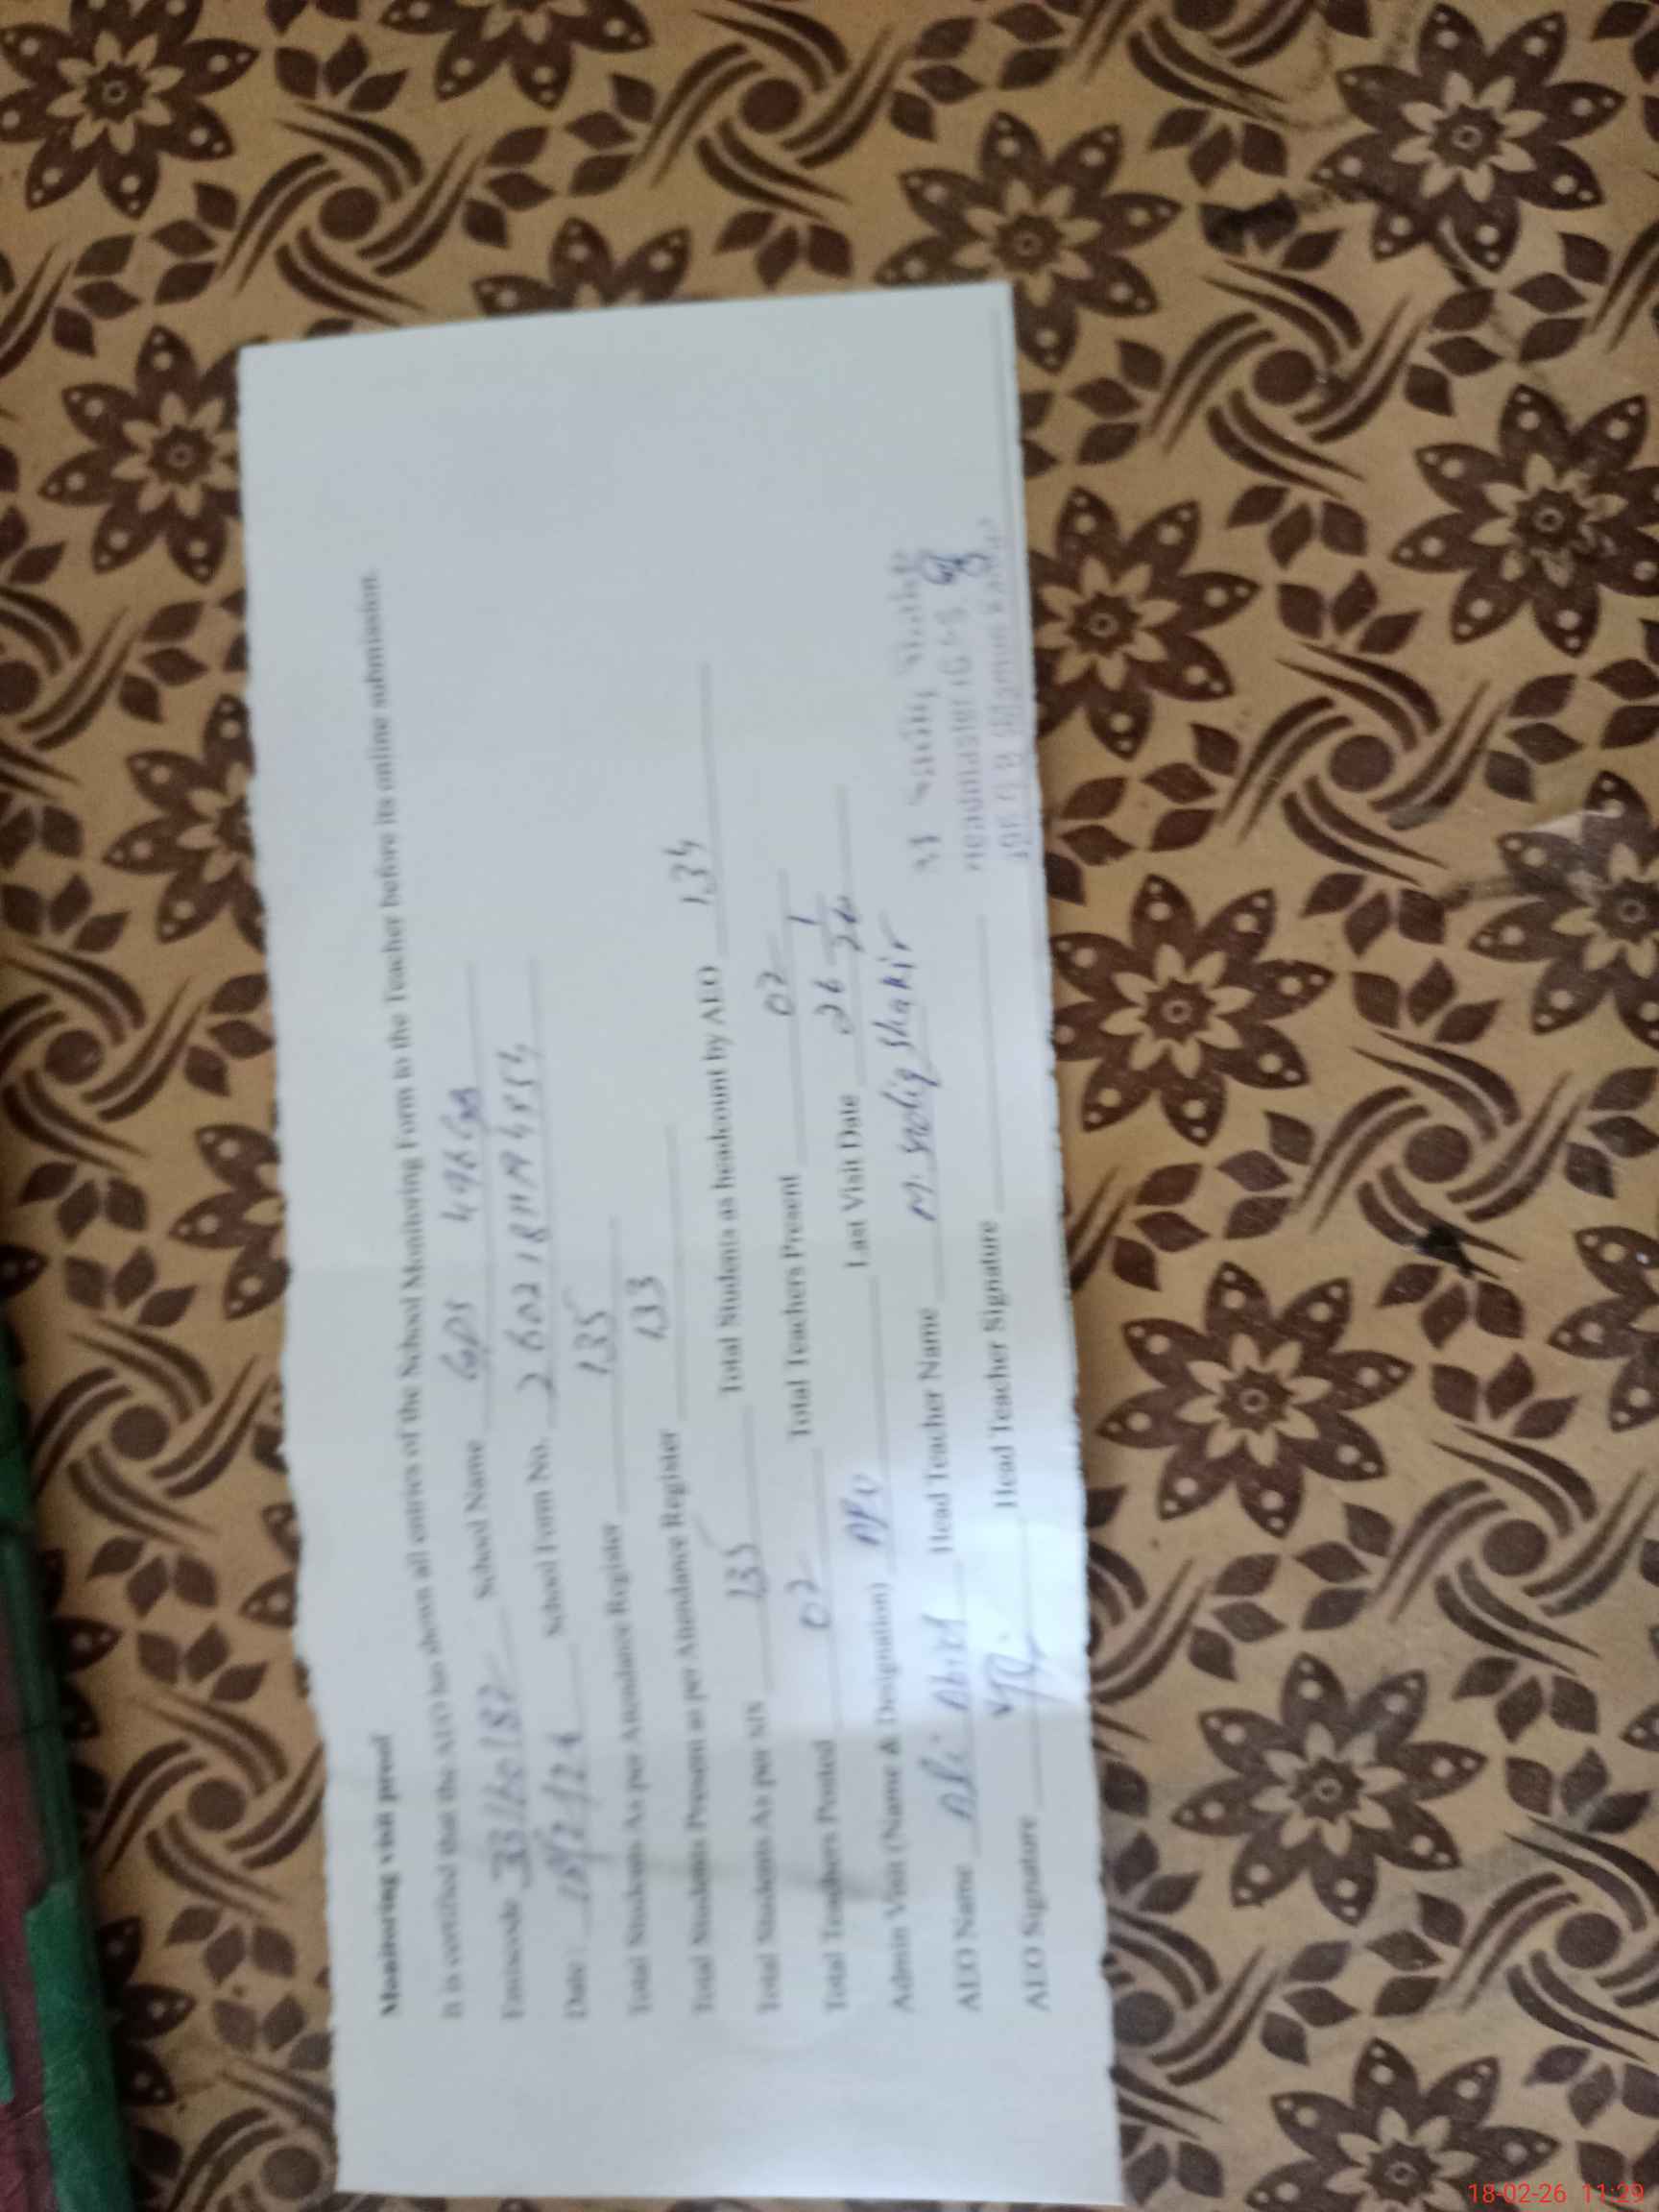 Monitoring visit proof
It is certified that the AEO has shown all entries of the School Monitoring Form to the Teacher before its online submission.
Emiscode 33160182 School Name GPS 496 GB
Date: 18/2/26 School Form No. 260218MA4854
Total Students As per Attendance Register 135
Total Students Present as per Attendance Register 133
Total Students As per SIS 135 Total Students as headcount by AEO 134
Total Teachers Posted 02 Total Teachers Present 02
Admin Visit (Name & Designation) Last Visit Date 26 1 26
AEO Name Ali Abid Head Teacher Name M. Sadiq Shakir
AEO Signature Head Teacher Signature
Headmaster
18-02-26 11:29